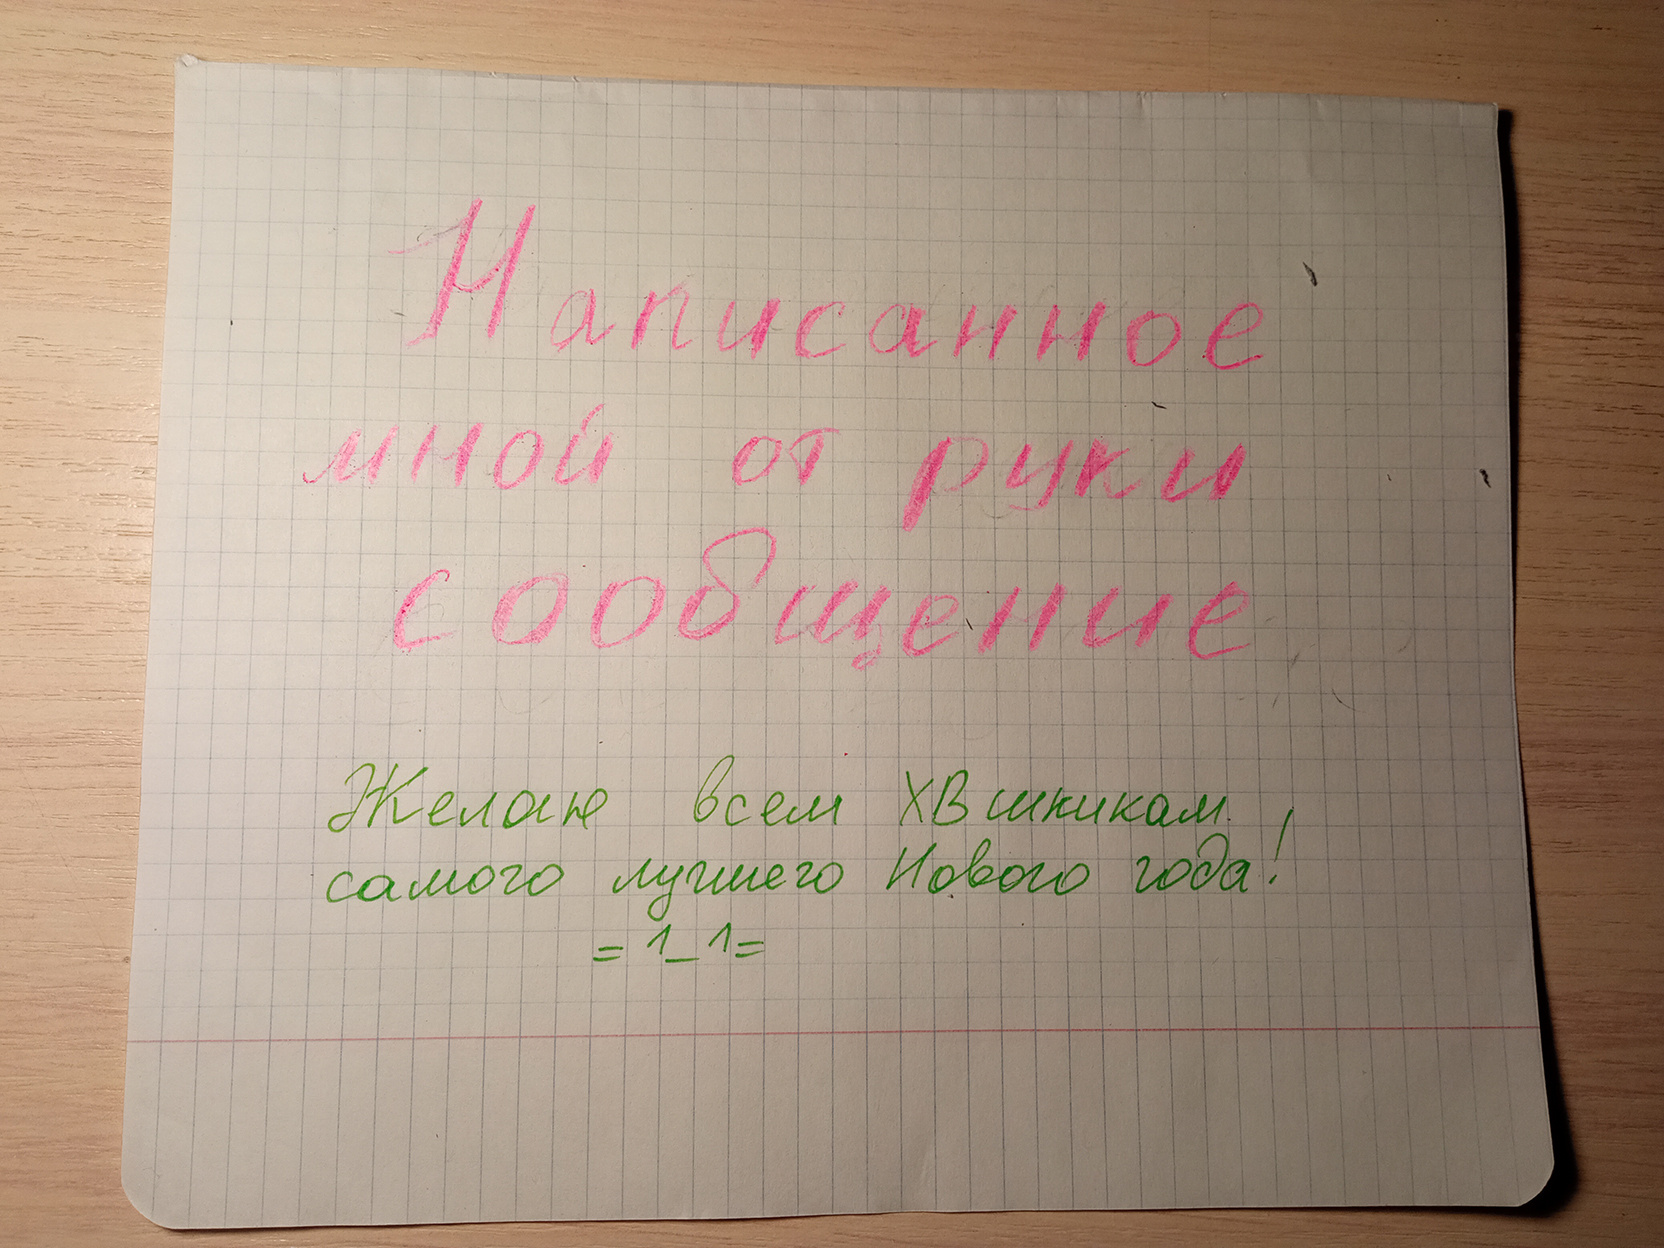 Написанное
мной от руки
сообщение
Желаю всем ХВшникам
самого лучшего Нового года!
=1_1=